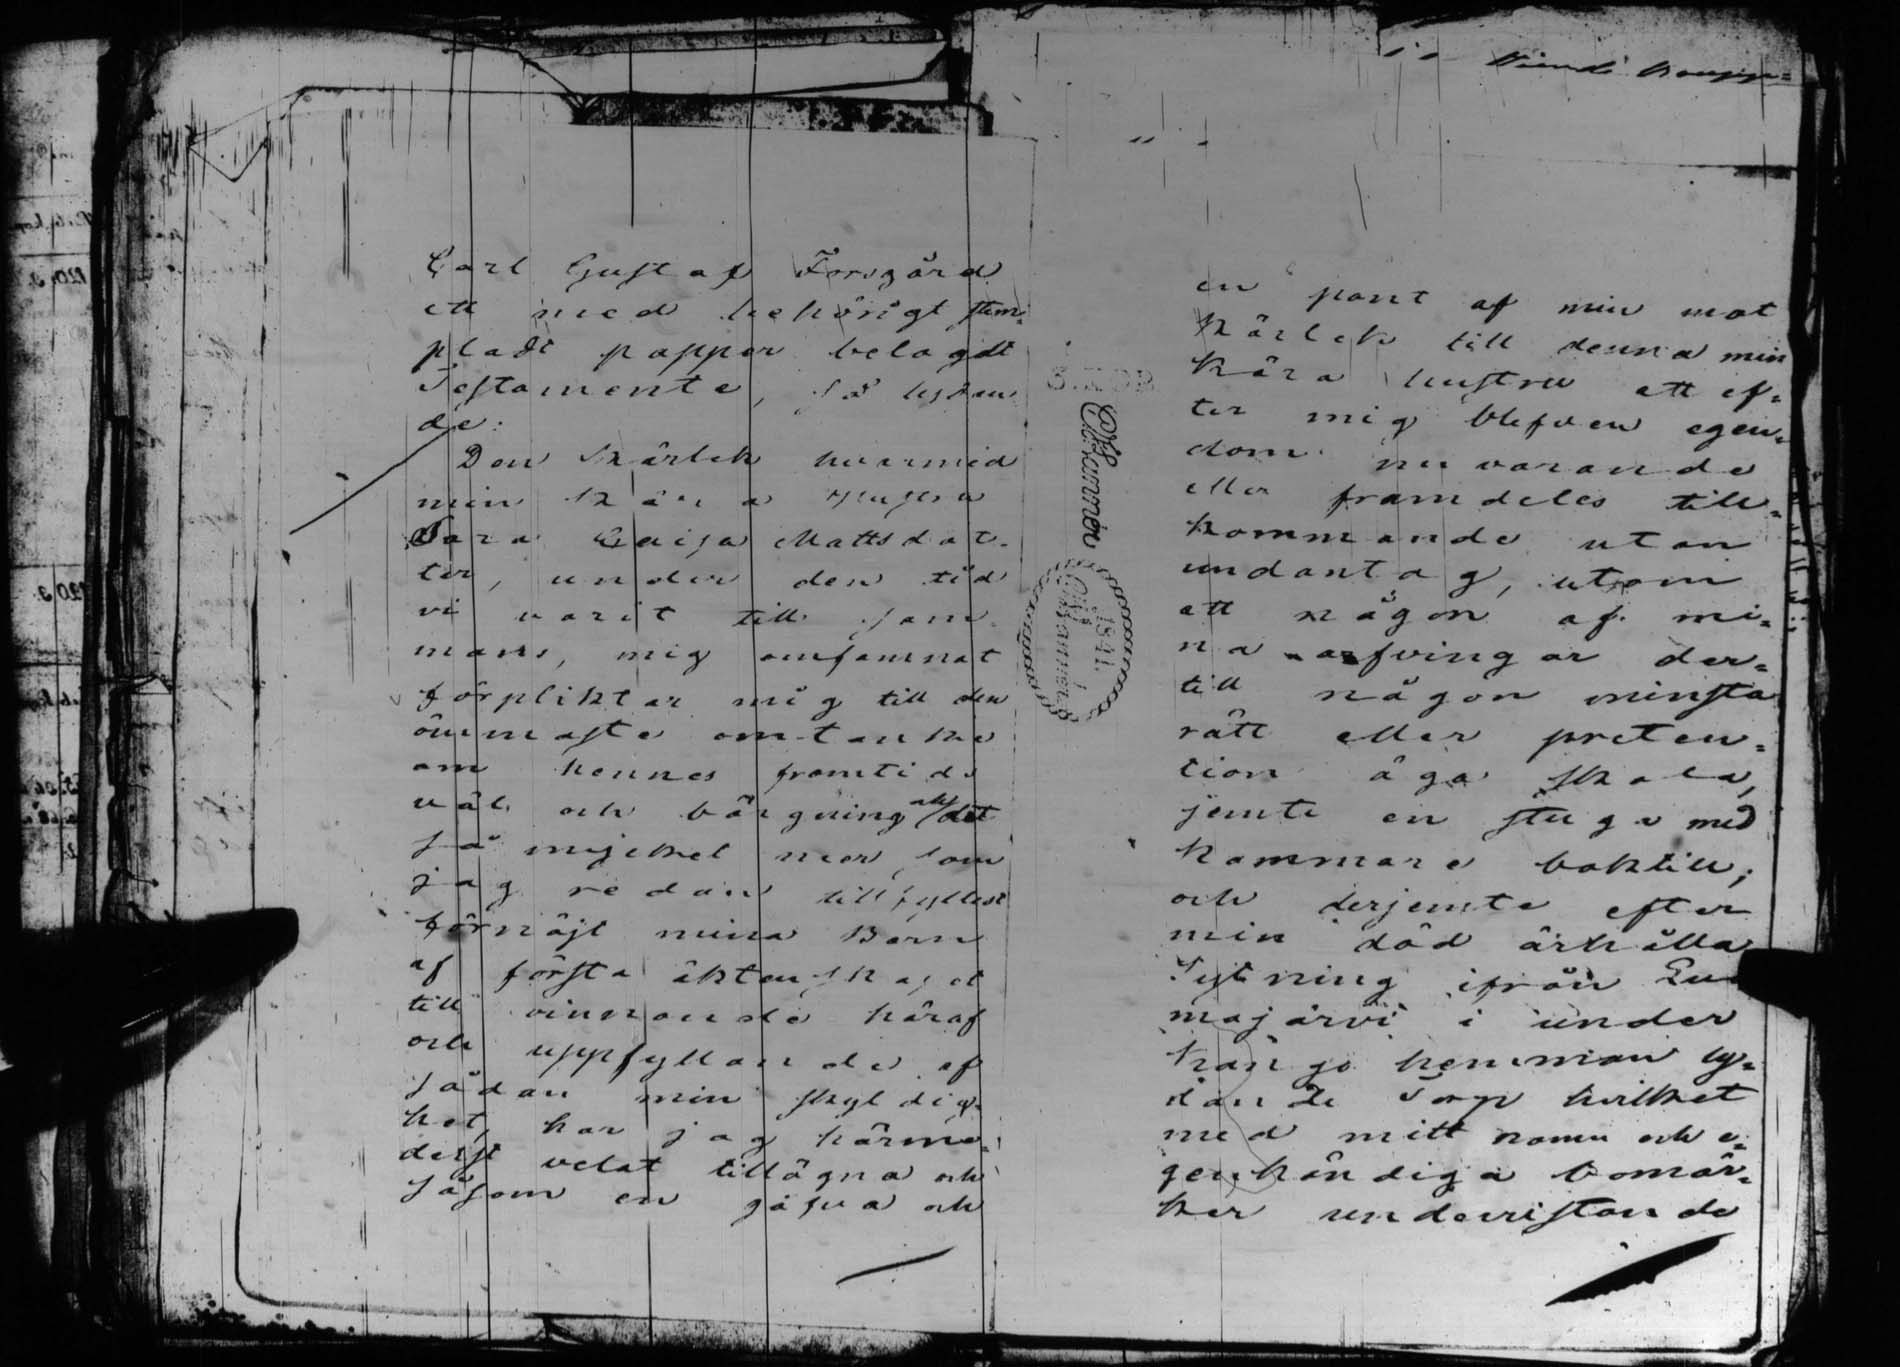 Carl Gustaf Forsgård
ett med behörigt stem-
pladt papper belagdt
Testamente, så lydan
de:
Den Kärlek hvarmed
min Kära Hustru
Sara Caisa Mattsdot-
ter, under den tid
vi varit till sam
mans, mig omfamnat
förpliktar mig till den
ömmaste omtanke
om hennes framtids
väl och bärgning och det
så myckel mer, som
jag redan tillfyllest
förnöjt mina Barn
af första äktenskapet
till vinnande häraf
och uppfyllande af
sådan min skyldig-
het, har jag härme-
delst velat tillägna och
såsom en gåfva och
en pant af min mot
Kärlek till denna min
Kära hustru att ef-
ter mig blefven egen-
dom nuvarande
eller framdeles till-
kommande utan
undantag, utom
att någon af mi-
na arfvingar der-
till någon minsta
rätt eller preten-
tion äga skola,
jemte en stuga med
Kammare baktill;
och derjemte efter
min död ärhålla
Sytning ifrån
majärvi i under
hemman ly-
dande Torp hvilket
med mitt namn och e-
genhändiga bomär-
ker undervistande
Ekmanner
1841.